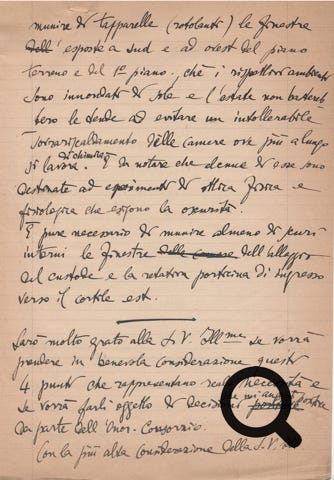 munire di tapparelle (rotolanti) le finestre
dell' esposte a sud e ad ovest del piano
terreno e del 1º piano, chè i rispettivi ambienti
sono innondati di sole e l'estate non bastereb
bero le tende ad evitare un intollerabile
sovrariscaldamento delle camere ove più a lungo
si lavora. È da notare che alcune di esse sono
di chimica
destinate ad esperimenti di ottica fisica e
fisiologica che esigono la oscurità.
È pure necessario di munire almeno di scuri
interni le finestre delle camere dell'alloggio
del custode e la relativa porticina di ingresso
verso il cortile est.
Sarò molto grato alla S. V. Ill.ma se vorrà
prendere in benevola considerazione questi
4 punti che rappresentano reali necessità e
se vorrà farli oggetto di decisioni
da parte dell'Onor. Consorzio.
Con la più alta considerazione della S. V.